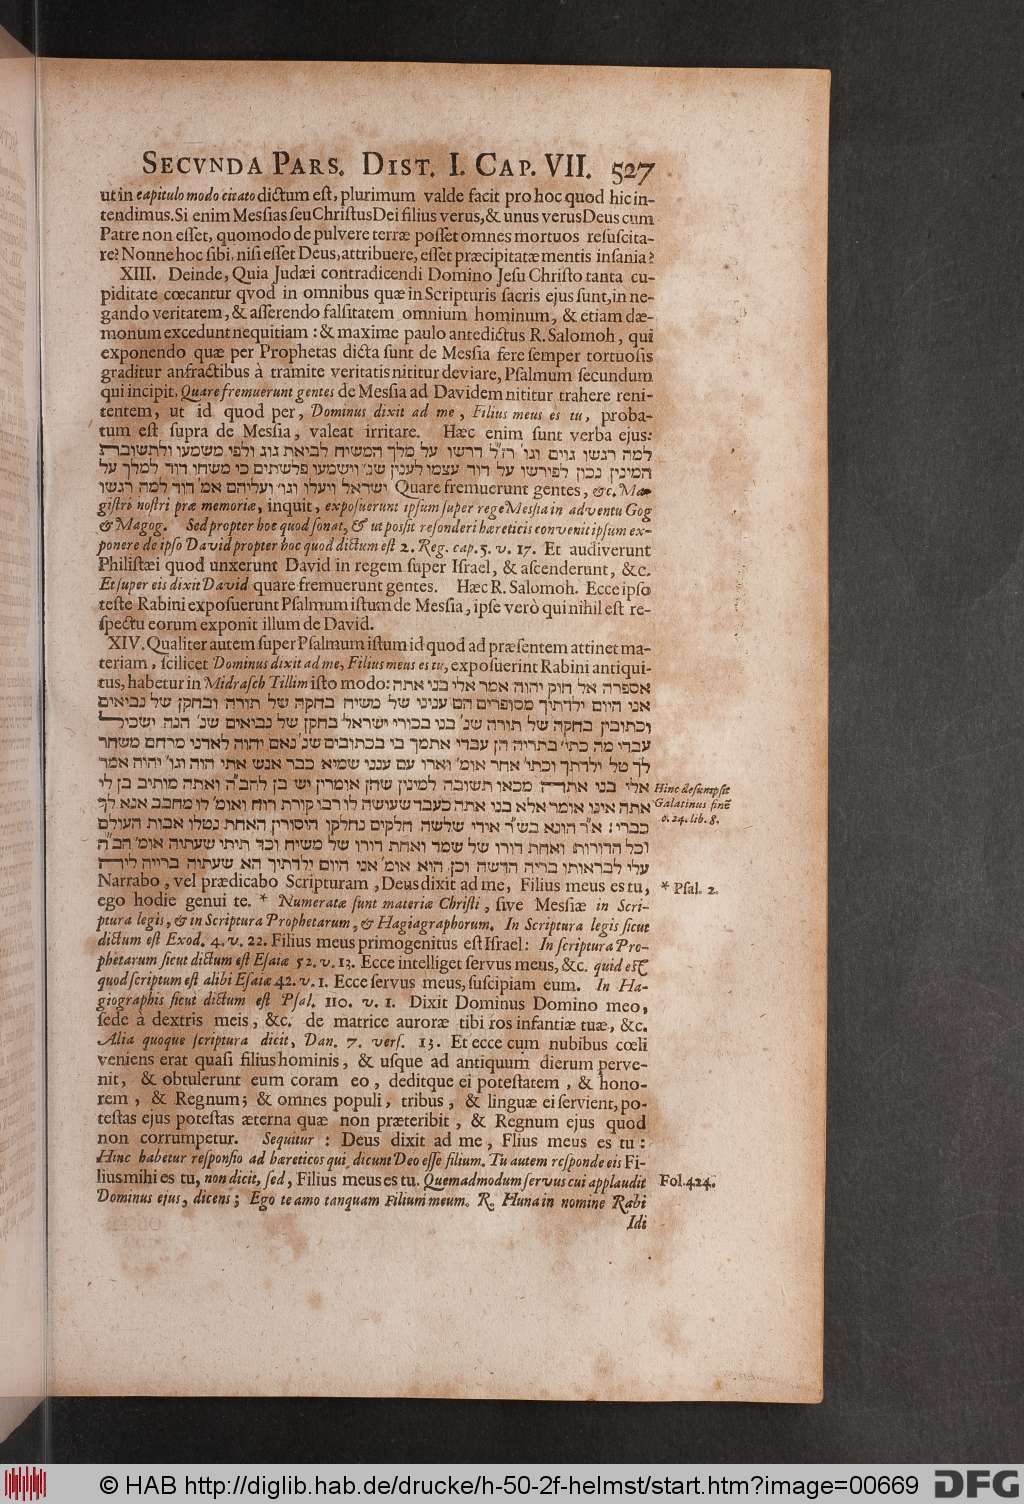 SECVNDA PARS. DIST. I. CAP. VII. 527
ut in capitulo modo citato dictum est, plurimum valde facit pro hoc quod hic in-
tendimus. Si enim Messias seu Christus Dei filius verus, & unus verus Deus cum
Patre non esset, quomodo de pulvere terræ posset omnes mortuos resuscita-
re? Nonne hoc sibi, nisi esset Deus, attribuere, esset præcipitatæ mentis insania?
XIII. Deinde, Quia Judæi contradicendi Domino Jesu Christo tanta cu-
piditate cœcantur qvod in omnibus quæ in Scripturis sacris ejus sunt, in ne-
gando veritatem, & asserendo falsitatem omnium hominum, & etiam dæ-
monum excedunt nequitiam: & maxime paulo antedictus R. Salomoh, qui
exponendo quæ per Prophetas dicta sunt de Messia fere semper tortuosis
graditur anfractibus à tramite veritatis nititur deviare, Psalmum secundum
qui incipit, Quare fremuerunt gentes de Messia ad Davidem nititur trahere reni-
tentem, ut id quod per, Dominus dixit ad me, Filius meus es tu, proba-
tum est supra de Messia, valeat irritare. Hæc enim sunt verba ejus:
למה רגשו גוים וגו׳ רז״ל דרשו על מלך המשיח לביאת גוג ולפי משמעו ולתשובת
המינין נכון לפירשו על דוד עצמו לענין שנ׳ וישמעו פלשתים כי משחו דוד למלך על
ישראל ויעלו וגו׳ ועליהם אמ׳ דוד למה רגשו Quare fremuerunt gentes, &c. Ma-
gistri nostri præ memoriæ, inquit, exposuerunt ipsum super rege Messia in adventu Gog
& Magog. Sed propter hoc quod sonat, & ut possit responderi hæreticis convenit ipsum ex-
ponere de ipso David propter hoc quod dictum est 2. Reg. cap. 5. v. 17. Et audiverunt
Philistæi quod unxerunt David in regem super Israel, & ascenderunt, &c.
Et super eis dixit David quare fremuerunt gentes. Hæc R. Salomoh. Ecce ipso
teste Rabini exposuerunt Psalmum istum de Messia, ipse verò qui nihil est re-
spectu eorum exponit illum de David.
XIV. Qualiter autem super Psalmum istum id quod ad præsentem attinet ma-
teriam, scilicet Dominus dixit ad me, Filius meus es tu, exposuerint Rabini antiqui-
tus, habetur in Midrasch Tillim isto modo: אספרה אל חוק יהוה אמר אלי בני אתה
אני היום ילדתיך מסופרים הם ענינו של משיח בחקה של תורה ובחקן של נביאים
וכתובין בחקה של תורה שנ׳ בני בכורי ישראל בחקן של נביאים שנ׳ הנה ישכיל
עבדי מה כתי׳ בתריה הן עבדי אתמך בו בכתובים שנ׳ נאם יהוה לאדני מרחם משחר
לך טל ילדתך וכתו׳ אחר אומ׳ וארו עם ענני שמיא כבר אנש אתי הוה וגו׳ יהוה אמר
אלי בני אתה מכאו תשובה למינין שהן אומרין יש בן להב״ה ואתה מותיב בן לי
אתה אינו אומר אלא בני אתה כעבד שעושה לו רבו קורת רוח ואומ׳ לו מחבב אנא לך
כברי: א״ר הונא בש״ר אידי שלשה חלקים נחלקו היסורין האחת נטלו אבות העולם
וכל הדורות ואחת דורו של שמד ואחת דורו של משיח וכד תיתי שעתיה אומ׳ הב״ה
עלי לבראותו בריה חדשה וכן הוא אומ׳ אני היום ילדתיך הא שעתיה ברייה ליה
Narrabo, vel prædicabo Scripturam, Deus dixit ad me, Filius meus es tu,
ego hodie genui te. * Numeratæ sunt materiæ Christi, sive Messiæ in Scri-
ptura legis, & in Scriptura Prophetarum, & Hagiagraphorum. In Scriptura legis sicut
dictum est Exod. 4. v. 22. Filius meus primogenitus est Israel: In scriptura Pro-
phetarum sicut dictum est Esaiæ 52. v. 13. Ecce intelliget servus meus, &c. quid est
quod scriptum est alibi Esaiæ 42. v. 1. Ecce servus meus, suscipiam eum. In Ha-
giographis sicut dictum est Psal. 110. v. 1. Dixit Dominus Domino meo,
sede à dextris meis, &c. de matrice auroræ tibi ros infantiæ tuæ, &c.
Alia quoque scriptura dicit, Dan. 7. vers. 13. Et ecce cum nubibus cœli
veniens erat quasi filius hominis, & usque ad antiquum dierum perve-
nit, & obtulerunt eum coram eo, deditque ei potestatem, & hono-
rem, & Regnum; & omnes populi, tribus, & linguæ ei servient, po-
testas ejus potestas æterna quæ non præteribit, & Regnum ejus quod
non corrumpetur. Sequitur: Deus dixit ad me, Flius meus es tu:
Hinc habetur responsio ad hæreticos qui dicunt Deo esse filium. Tu autem responde eis Fi-
lius mihi es tu, non dicit, sed, Filius meus es tu. Quemadmodum servus cui applaudit
Dominus ejus, dicens; Ego te amo tanquam Filium meum. R. Huna in nomine Rabi
Idi
Hinc desumpsit
Galatinus finē
c. 24. lib. 8.
* Psal. 2.
Fol. 424.
© HAB http://diglib.hab.de/drucke/h-50-2f-helmst/start.htm?image=00669
DFG